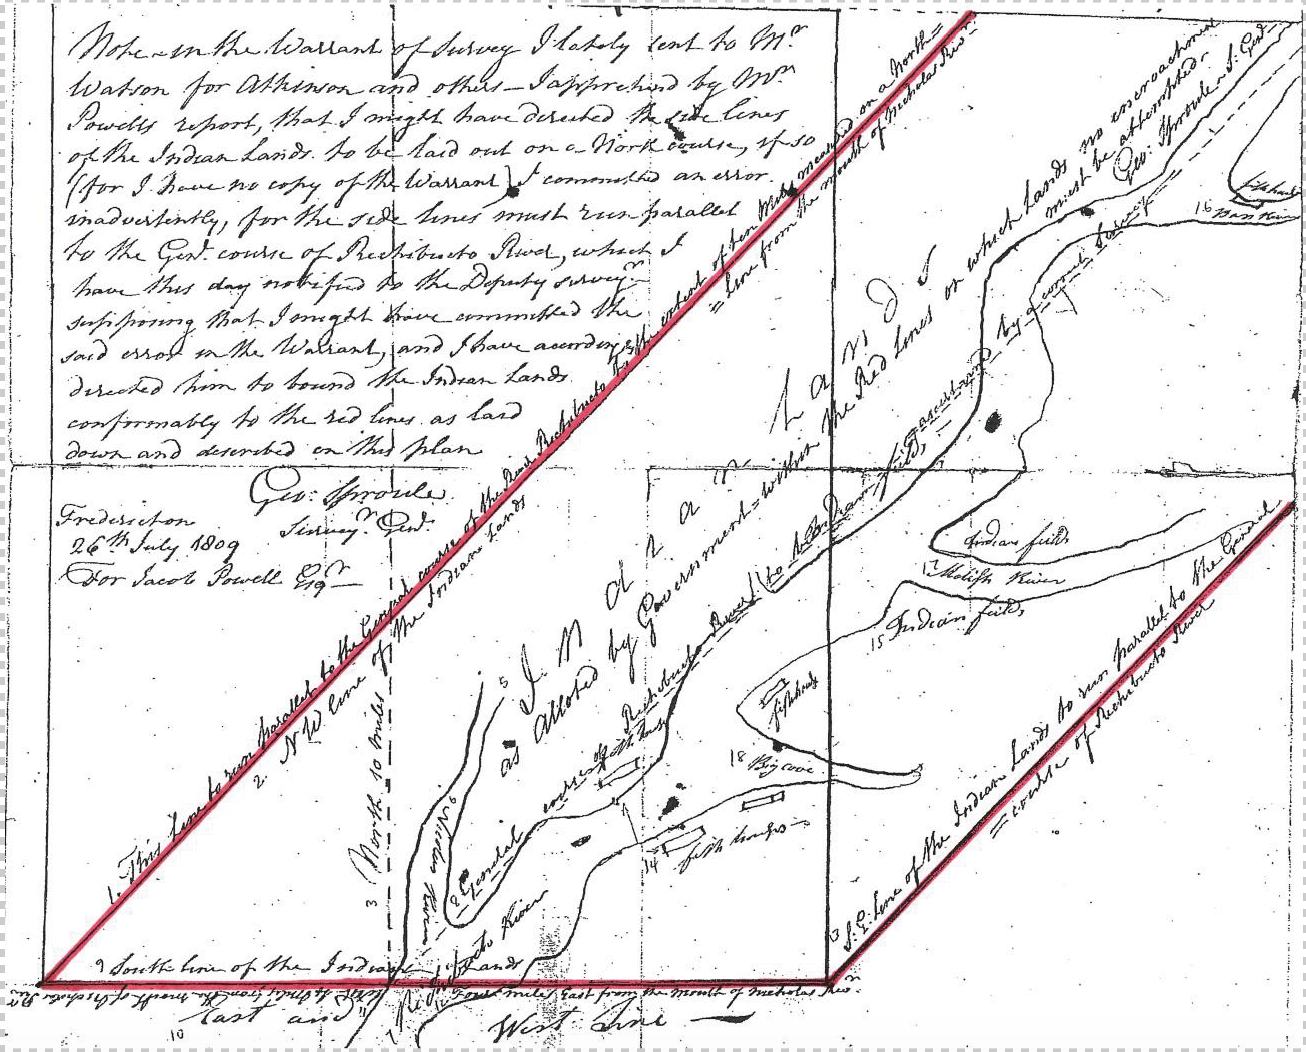 Note - in the Warrant of Survey I lately sent to Mr
Watson for Atkinson and others - I apprehend by Mr
Powells report, that I might have directed the side lines
of the Indian Lands to be laid out on a North course, if so
(for I have no copy of the Warrant) I committed an error
inadvertently, for the side lines must run parallel
to the Genl. course of Rechibucto River, which I
have this day notified to the Deputy Surveyr
supposing that I might have committed the
said error in the Warrant, and I have
directed him to bound the Indian Lands
conformably to the red lines as laid
down and described on this plan
Geo: Sproule
Survayr. Genl.
Fredericton
26th July 1809
For Jacob Powell Esqr
1. This line to run parallel to the General course of the River Rechibucto to the extent of ten Miles measured on a North =
= line from the mouth of Nicholas Rivr
2. N W line of the Indian Lands
3 North 10 miles
5
Indian Lands
as allotted by Government - within the Red Lines on which Lands no encroachment
must be attempted.
Geo: Sproule S. Genl
6 Nicholas River
8 General course of Rechibucto River (to be ascertained by a correct Survey
Indian fields
fish huts
16 Bass River
Indian fields
17 Molish River
15 Indian fields
fish huts
18 Big cove
14 fish houses
13 S: E: Line of the Indian Lands to run parallel to the General
= course of Rechibucto River
9 South line of the Indian Lands
7 Rechibucto River
Four miles East from the Mouth of Nicholas Rivr
10 East and West Line
11